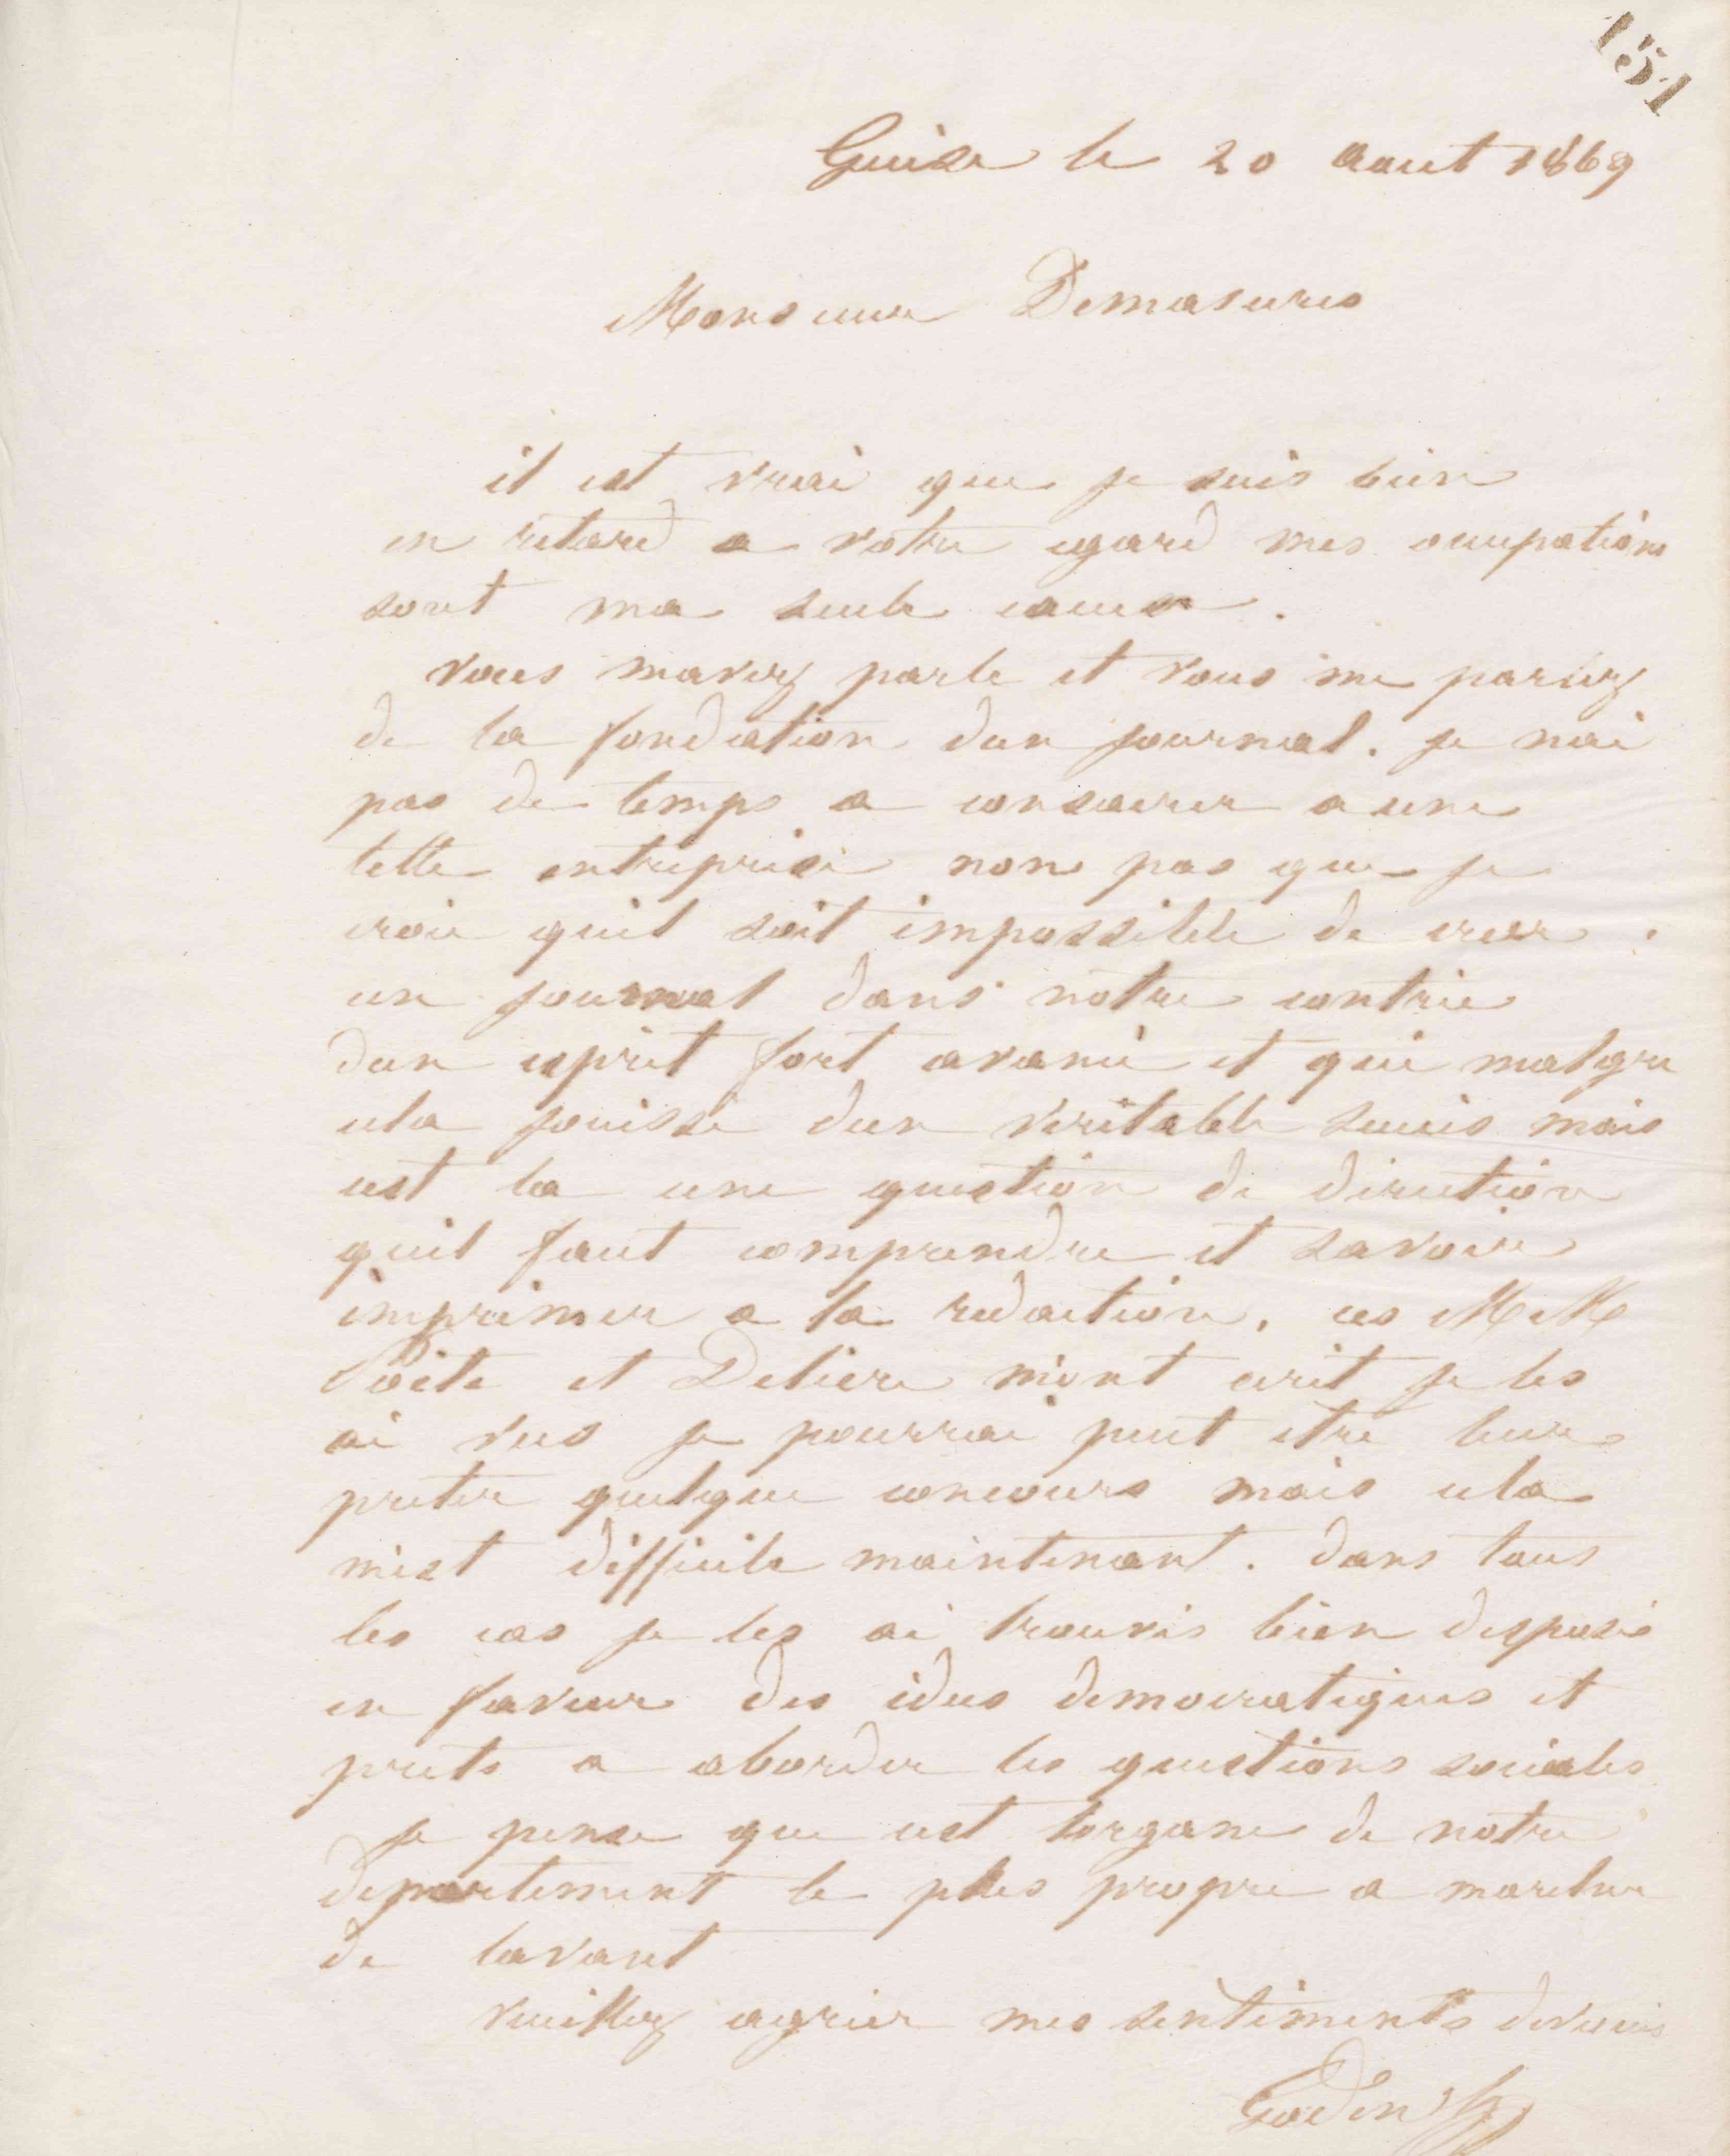 151
Guise le 20 aout 1869
Monsieur Demasures
il est vrai que je suis bien
en retard a votre egard mes occupations
sont ma seule cause.
vous mavez parle et vous me parliez
de la fondation dun journal. je nai
pas de temps a consacrer a une
telle entreprise non pas que je
croie quil soit impossible de creer
un journal dans notre contrée
dun esprit fort avancé et qui malgre
cela jouisse dun veritable succès mais
cest la une question de direction
quil faut comprendre et savoir
imprimer a la redaction. ces MM
et m'ont ecrit je les
ai vus je pourrai peut etre leur
preter quelque concours mais cela
mest difficile maintenant. Dans tous
les cas je les ai trouvés bien disposés
en faveur des idees democratiques et
prets a aborder les questions sociales
je pense que cest lorgane de notre
departement le plus propre a marcher
de lavant
veuillez agreer mes sentiments devoués
Godin